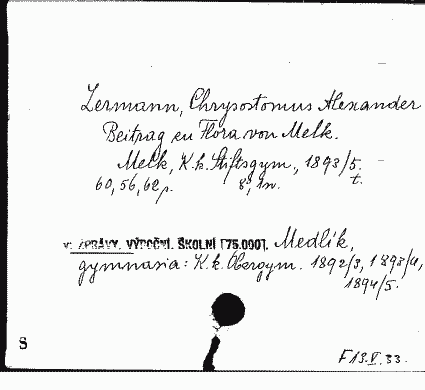 Zermann, Chrysostomus Alexander
Beitrag zu Flora von Melk.
Melk, K.k. Stiftsgym., 1893/5.
60, 56, 62 p. 8°, 1 m. t.
v: ZPRÁVY, VÝROČNÍ, ŠKOLNÍ [75.000]. Medlík,
gymnasia: K.k. Obergym. 1892/3, 1893/4,
1894/5.
S
F13.V.33.